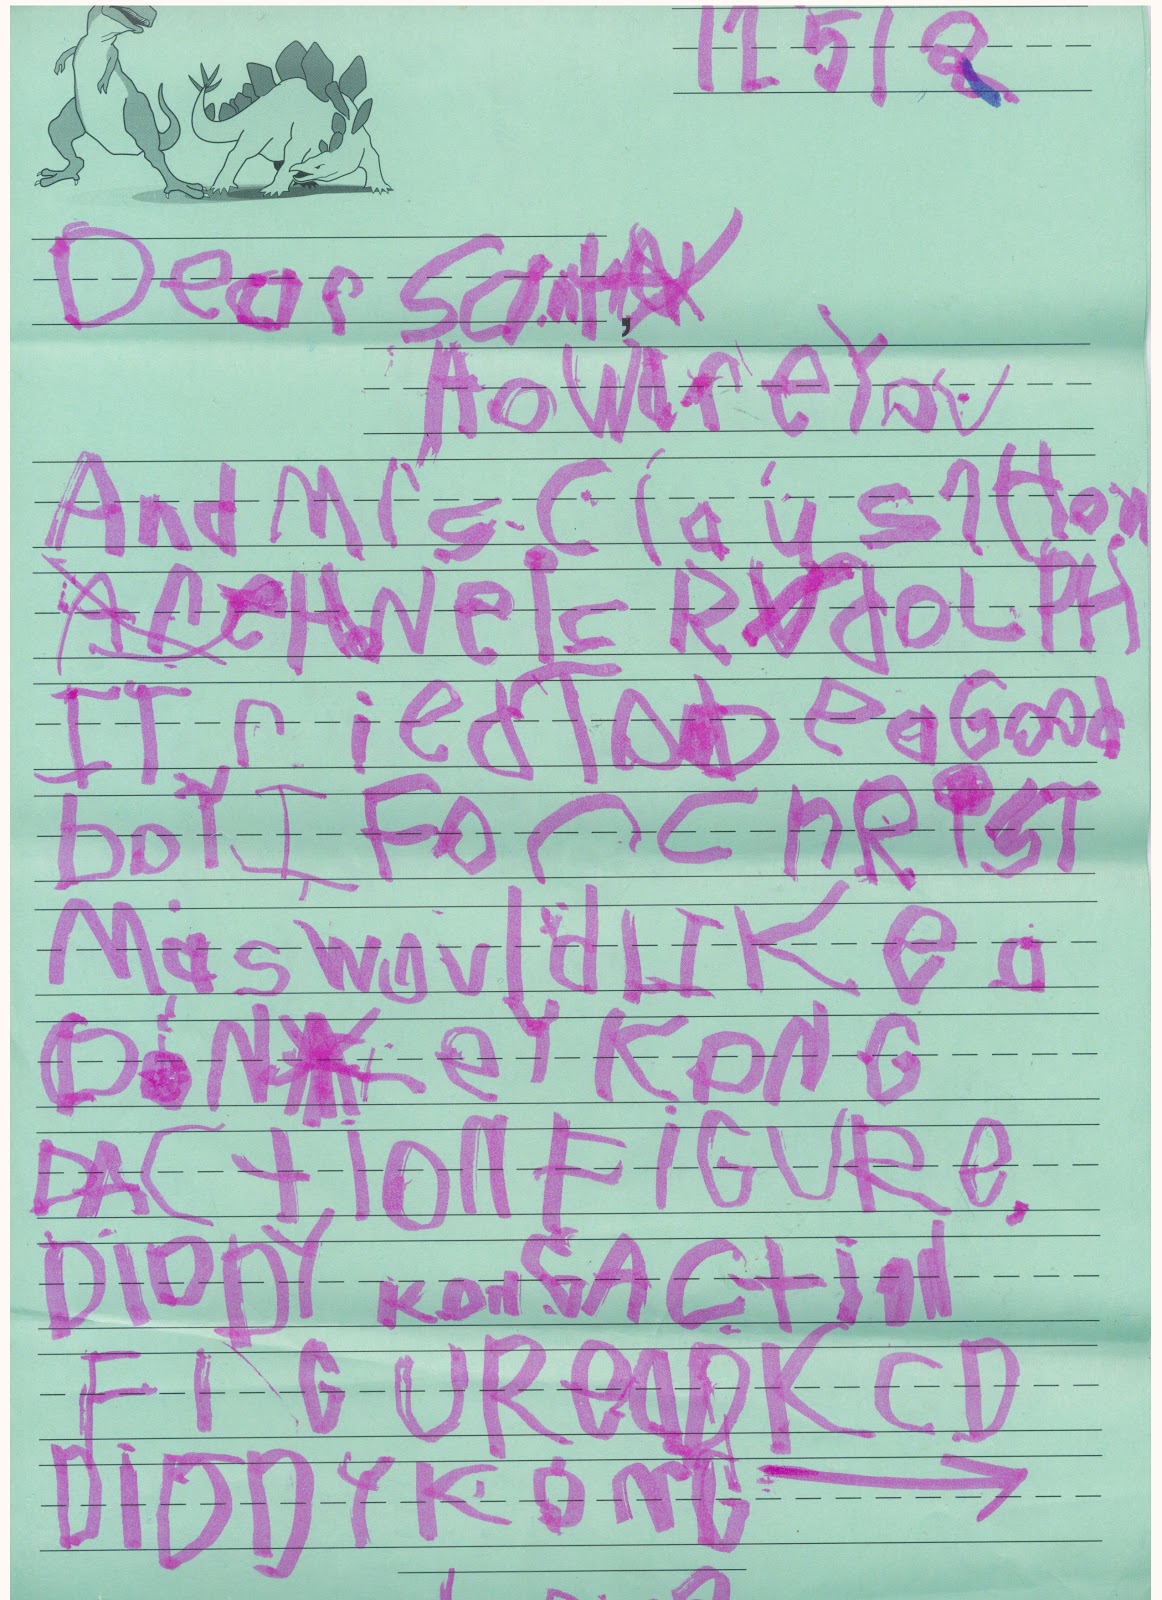 12 5 18
Dear Santa,
How are you
And Mrs. Claus? How
Are Hweis RUdOLPH
I Tried To be a Good
boY I For cHRIST
Mas would LIKe a
DONKeY KONG
ACtion FiGURe,
DIDDY KONG ACtion
FIGURe aD KCD
DIDDY KONG →